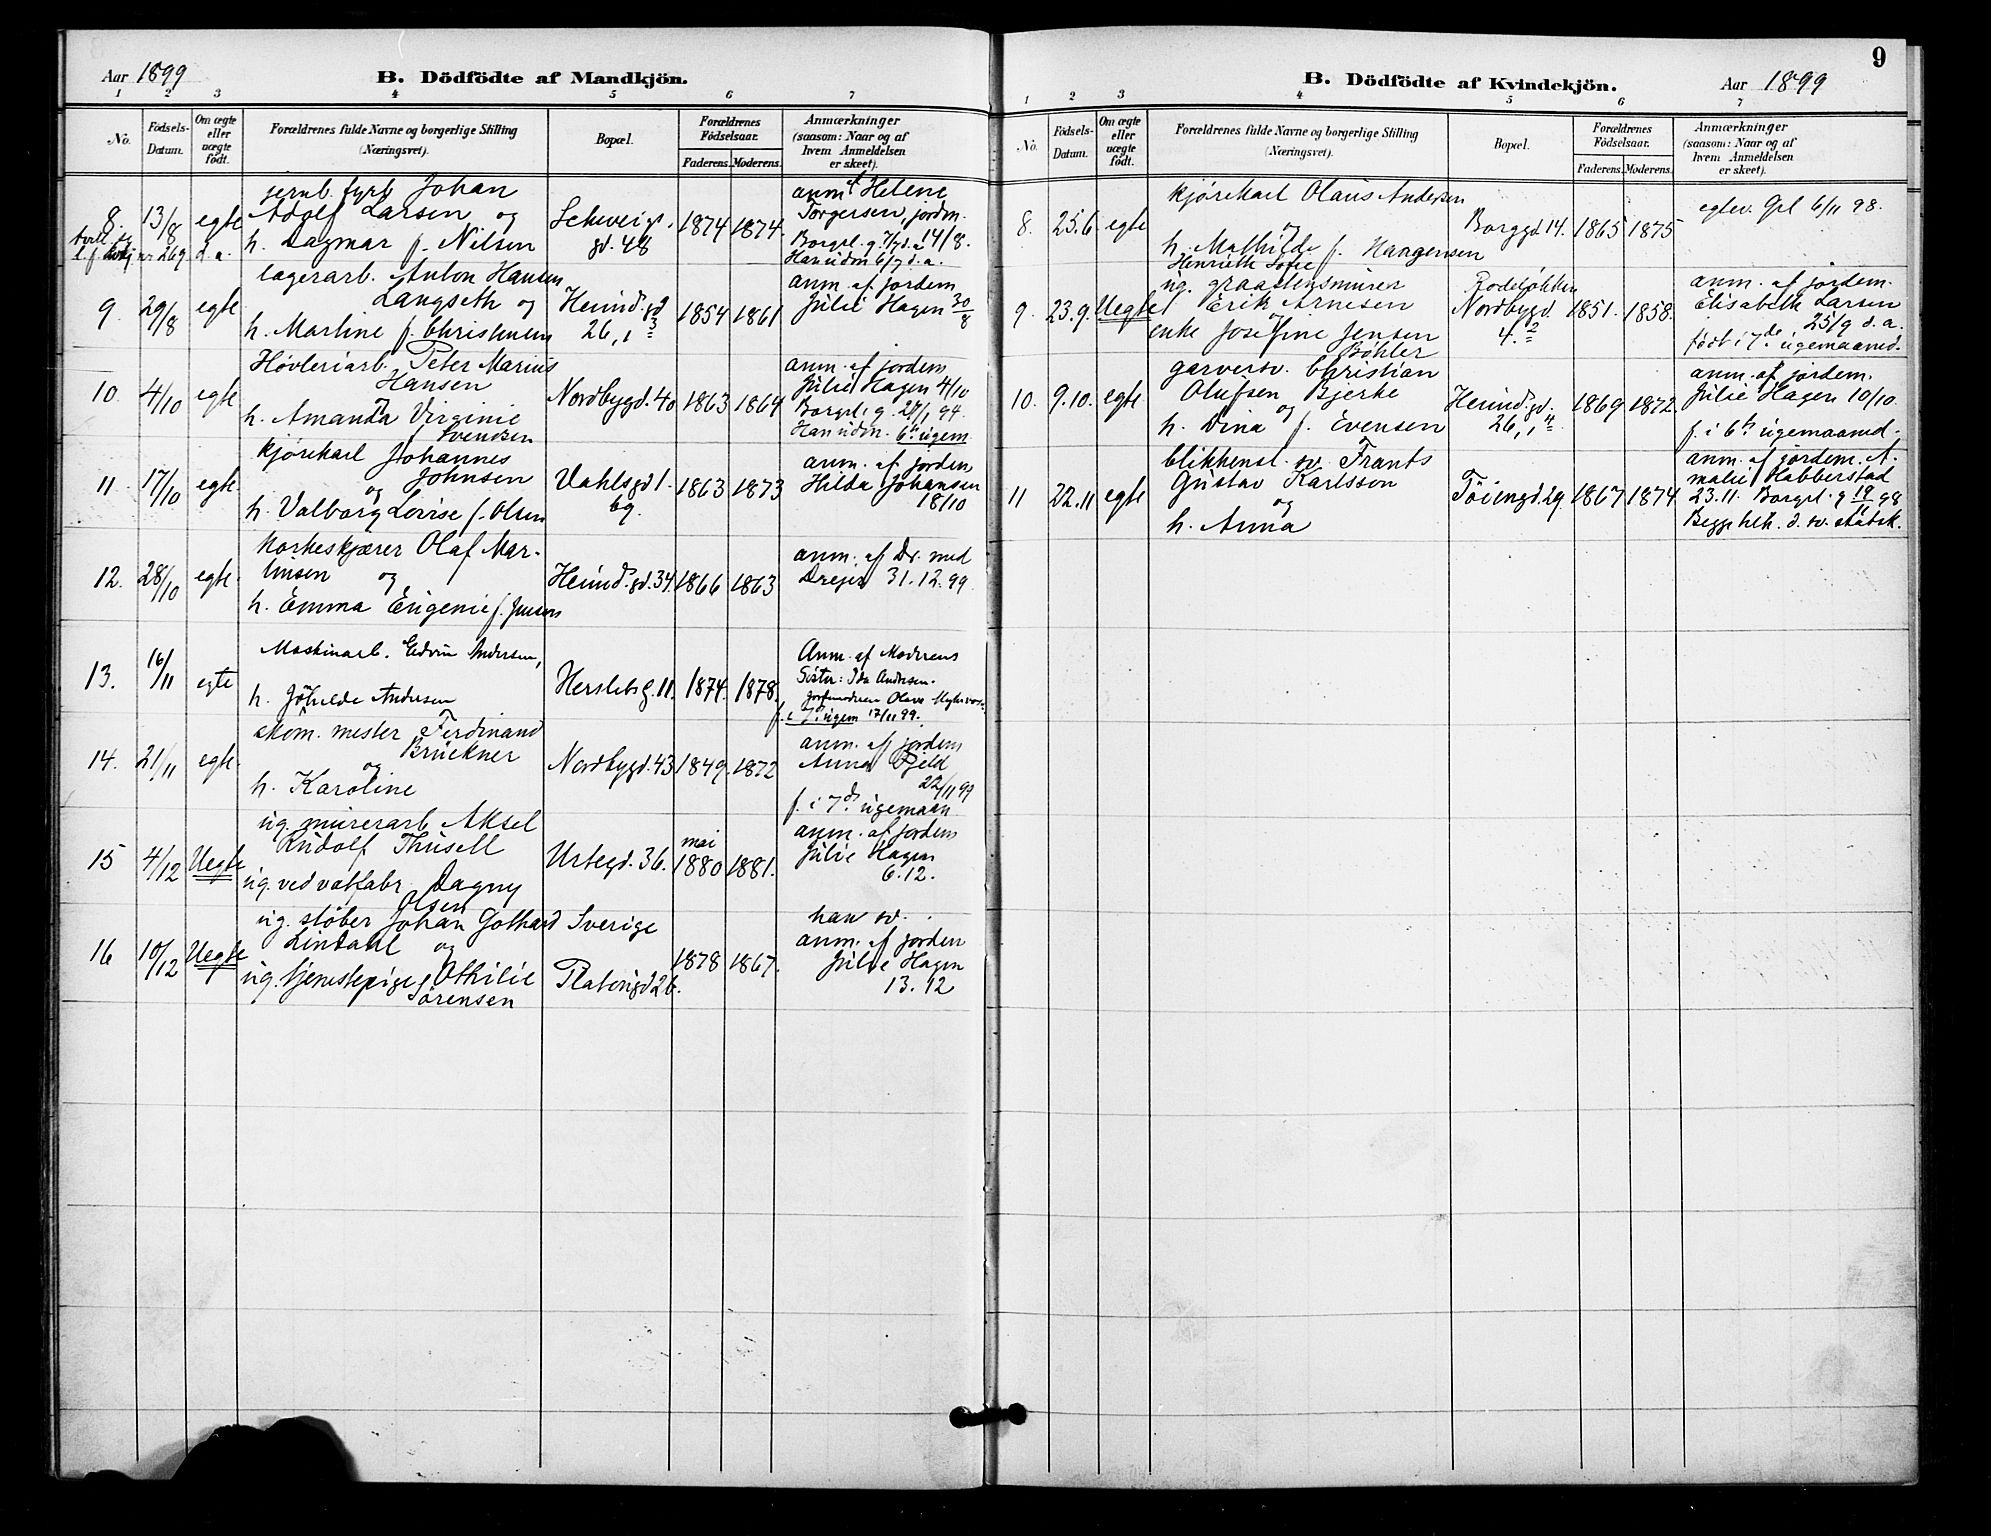 Aar 1899
B. Dödfödte af Mandkjön.
1 2 3 4 5 6 7
No.
Födsels-Datum.
Om ægte eller uægte födt.
Forældrenes fulde Navne og borgerlige Stilling (Næringsvei).
Bopæl.
Forældrenes Födselsaar.
Faderens. Moderens.
Anmærkninger (saasom: Naar og af hvem Anmeldelsen er skeet).
8. 13/8 egte
jernb. fyrb Johan
Adolf Larsen og
h. Dagmar f. Nilsen
nr 269 d. a.
Schweigs.
gd. 48
1874 1874
anm. Helene
Torgersen, jordm.
14/8.
Han udm 6/7 d. a.
9. 29/8 egte
lagerarb. Anton Hansen
Langseth og
h. Martine f. Christensen
Heimd. gd
26, 1
1854 1861
anm. af jordem
Julie Hagen 30/8
10. 4/10 egte
Høvleriarb. Peter Marius
Hansen
og
h. Amanda Virginie
f. Svendsen
Nordbygd. 40
1863 1869
anm. af jordem
Julie Hagen 4/10
Borgsl. g. 27/1 94.
Han udm. 6te ugem
11. 17/10 egte
kjørekarl Johannes
Johnsen
og
h. Valborg Lovise f. Olsen
Vahlsgd 1.
1863 1873
anm. af jordem
Hilda Johansen
18/10
12. 28/10 egte
Korkeskjærer Olaf Mar-
tinsen og
h. Emma Eugenie f. Jensen
Heimd. gd. 34
1866 1863
anm. af Dr. med
31.12.99
13. 16/11 egte
Maskinarb. Edvin Andersen,
h. Andersen
Herslebsg. 11.
1874. 1878.
Anm. af Moderens
Sister: Ida Andersen.
f. i 7. ugem 17/11 99.
14. 21/11 egte
skom. mester Ferdinand
Brückner
og
h. Karoline
Nordbygd. 43
1849. 1872
anm. af jordem
Anna Fjeld
22/11 99
f. i 7de ugemaan
15 4/12 Uegte
ug. murerarb Aksel
Rudolf Thusell
ug. ved vatfabr. Dagny
Olsen
Urtegd. 36.
mai
1880 1881.
anm. af jordem
Julie Hagen
6.12.
16 10/12 Uegte
ug. støber Johan Gothard
Lindahl og
ug. tjenestepige Othilie
Sørensen
Sverige
Platougd 26.
1878 1867.
han sv.
anm. af jordem
Julie Hagen
13.12
9
B. Dödfödte af Kvindekjön.
Aar 1899
1 2 3 4 5 6 7
No.
Födsels-Datum.
Om ægte eller uægte födt.
Forældrenes fulde Navne og borgerlige Stilling (Næringsvei).
Bopæl.
Forældrenes Födselsaar.
Faderens. Moderens.
Anmærkninger (saasom: Naar og af hvem Anmeldelsen er skeet).
8. 25.6. egte
kjørekarl Olaus Andersen
og
h. Mathilde f. Haagensen
Henriette Sofie
Borggd 14.
1865 1875
egtev. Gpl 6/11 98.
9. 23.9. Uegte
ug. graastensmurer
Erik Arnesen
og
enke Josefine Jensen
Bøhler
Rodeløkken
Nordbygd.
4.2
1851. 1858.
anm. af jordem.
Elisabeth Larsen
25/9 d. a.
født i 7de ugemaaned.
10. 9.10. egte
garversv. Christian
Olufsen Bjerke
og
h. Dina f. Evensen
Heimd. gd.
26, 1
1869 1872.
anm. af jordem.
Julie Hagen 10/10.
f. i 6te ugemaaned.
11 22.11 egte
blikkensl. sv. Frants
Gustav Karlsson
og
h. Anna
Töiengd. 29.
1867 1874
anm. af jordem. A-
malie Habberstad
23.11. Borgsl. g 19/11 98
Begge hth. d. sv. statsk.